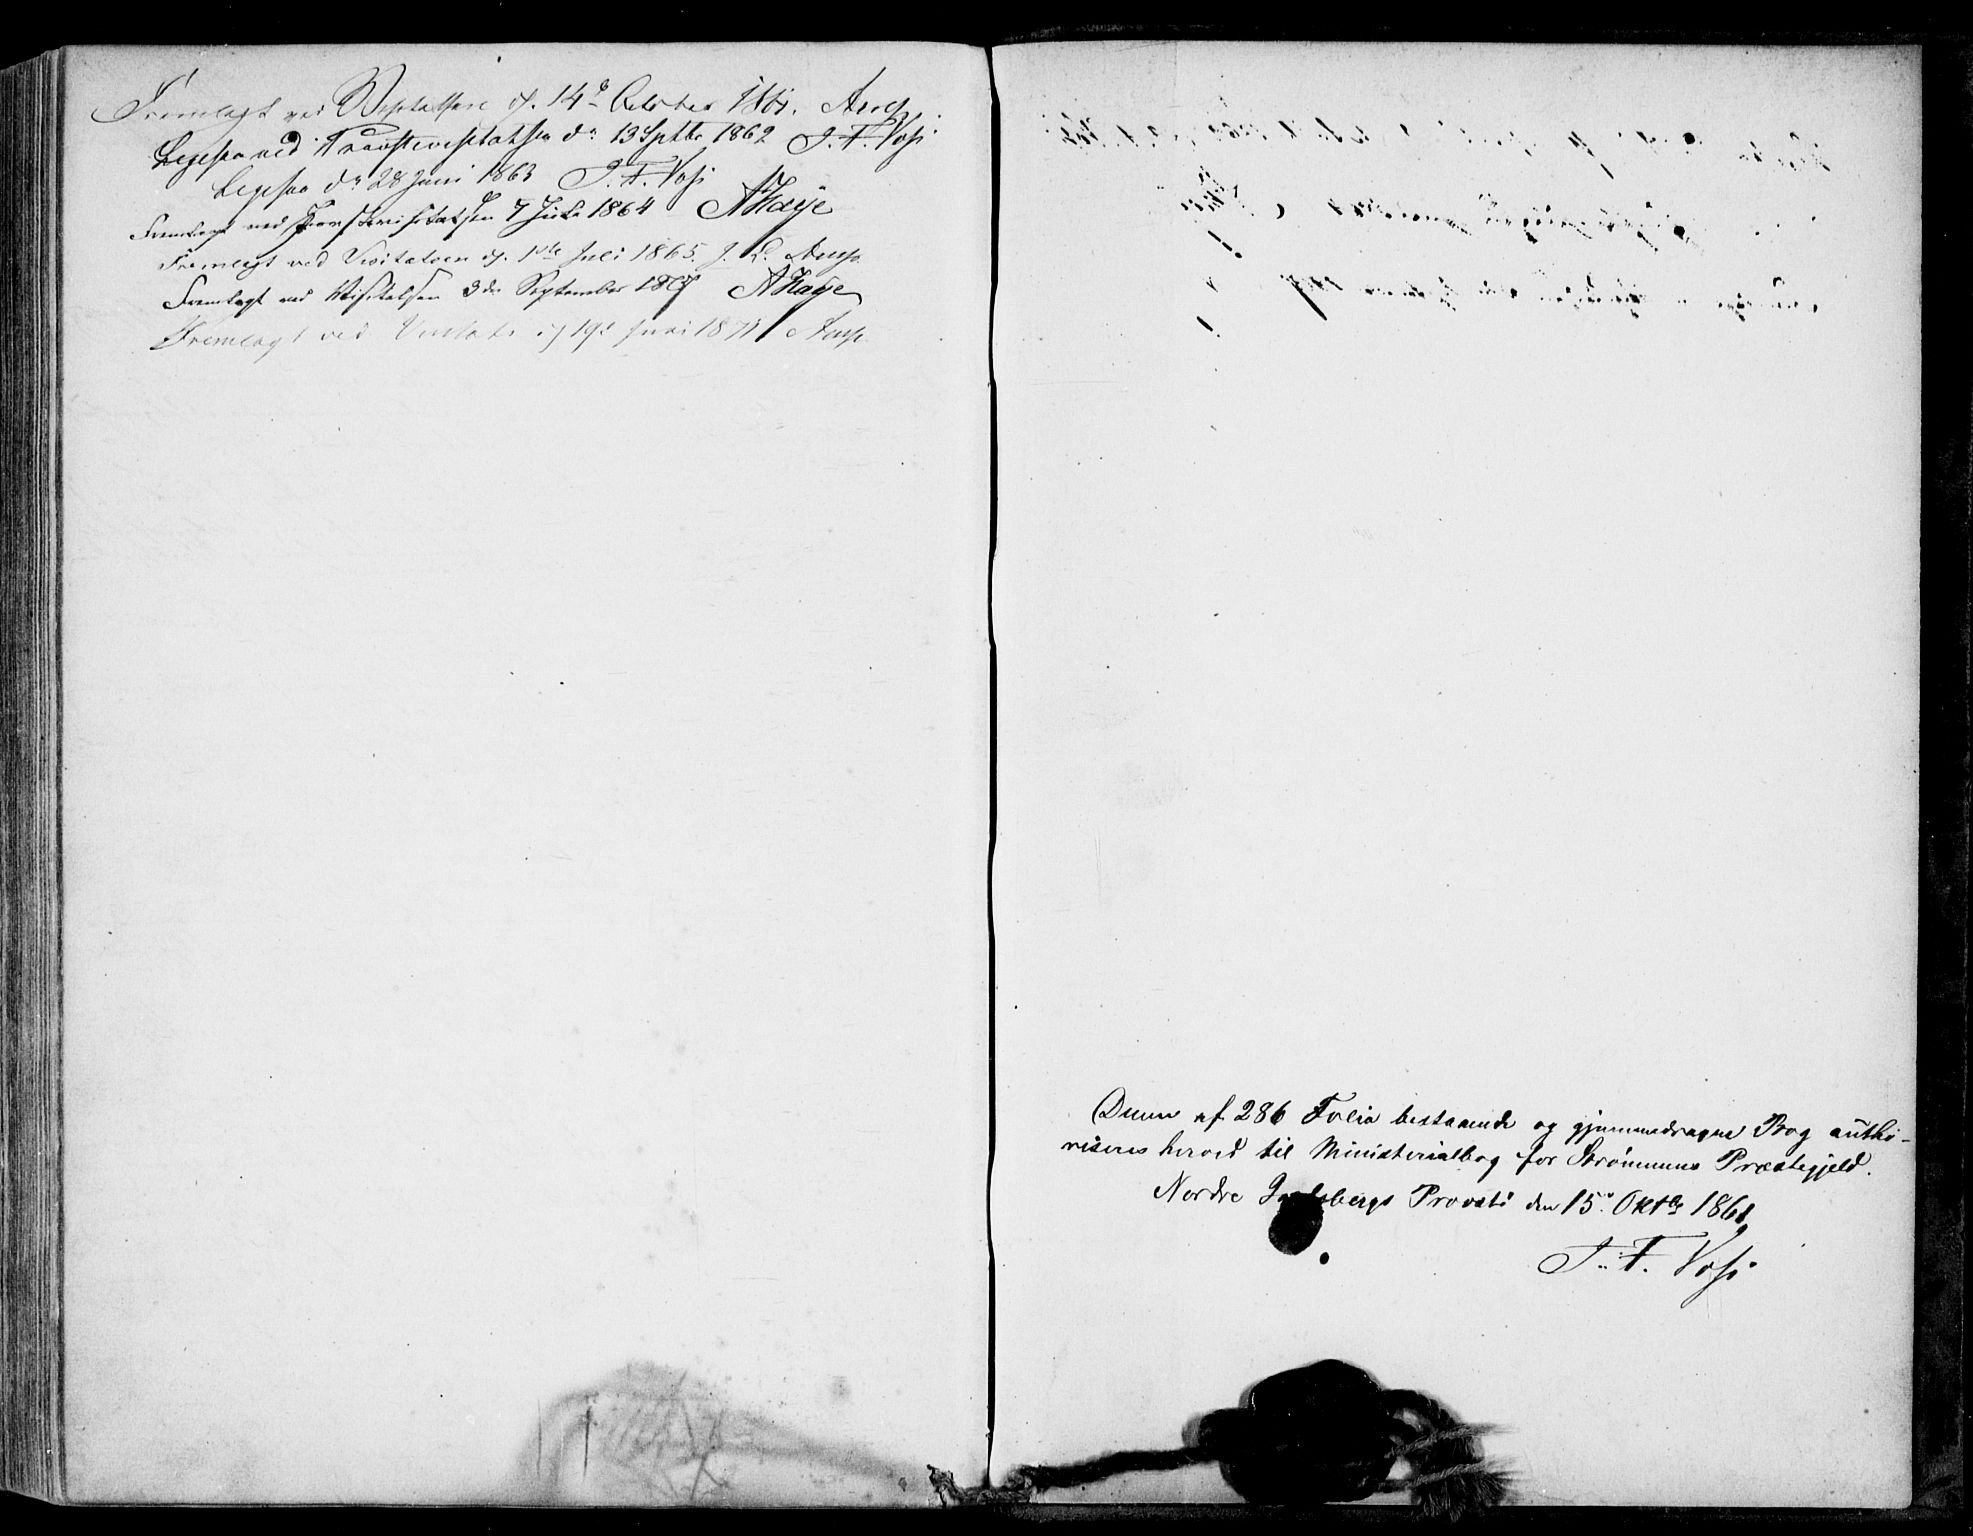 Fremlagt ved Visitatsen d. 14de October 1861.
ved Provstevisitatsen dn 13 Septbr 1862 J. F. Voss
dn 28 Juni 1863 J. F. Voss
Fremlagt ved Provstevisitatsen 7 1864 AHaye
Fremlagt ved Visitatsen d. 1ste Juli 1865.
Fremlagt ved Visitatsen 3de September 1867 AHaye
Fremlagt ved d 19de Juni 1871
Denne af 286 Folia bestaaende og gjennemdragne Bog autho-
riseres herved til Ministerialbog for Strømmens Præstegjeld.
Nordre Jarlsbergs Provsti den 15. Oktbr 1861.
J. F. Voss